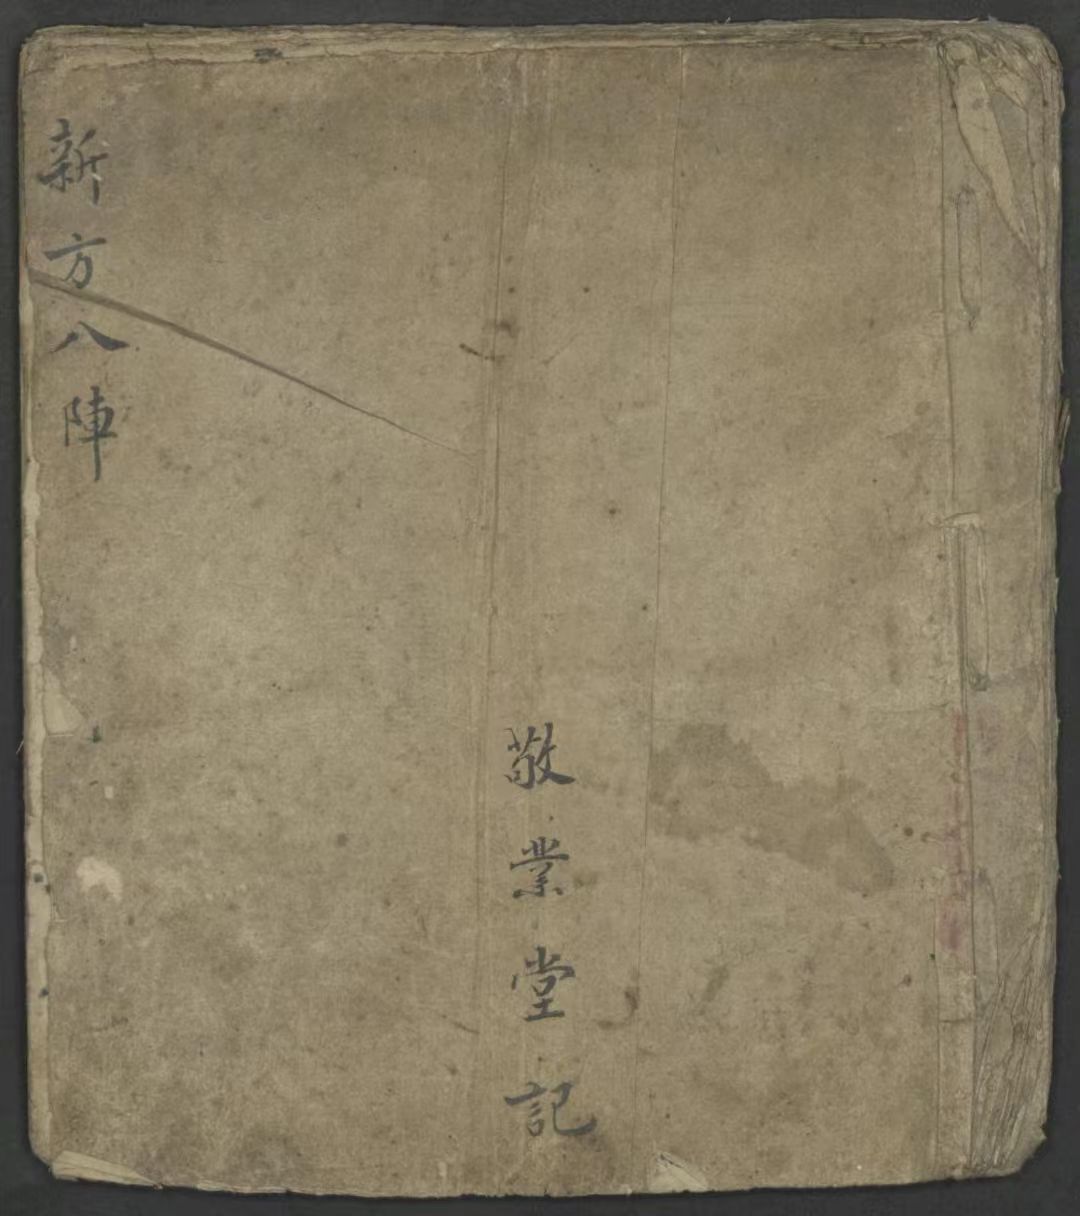 新方八陣
敬業堂記